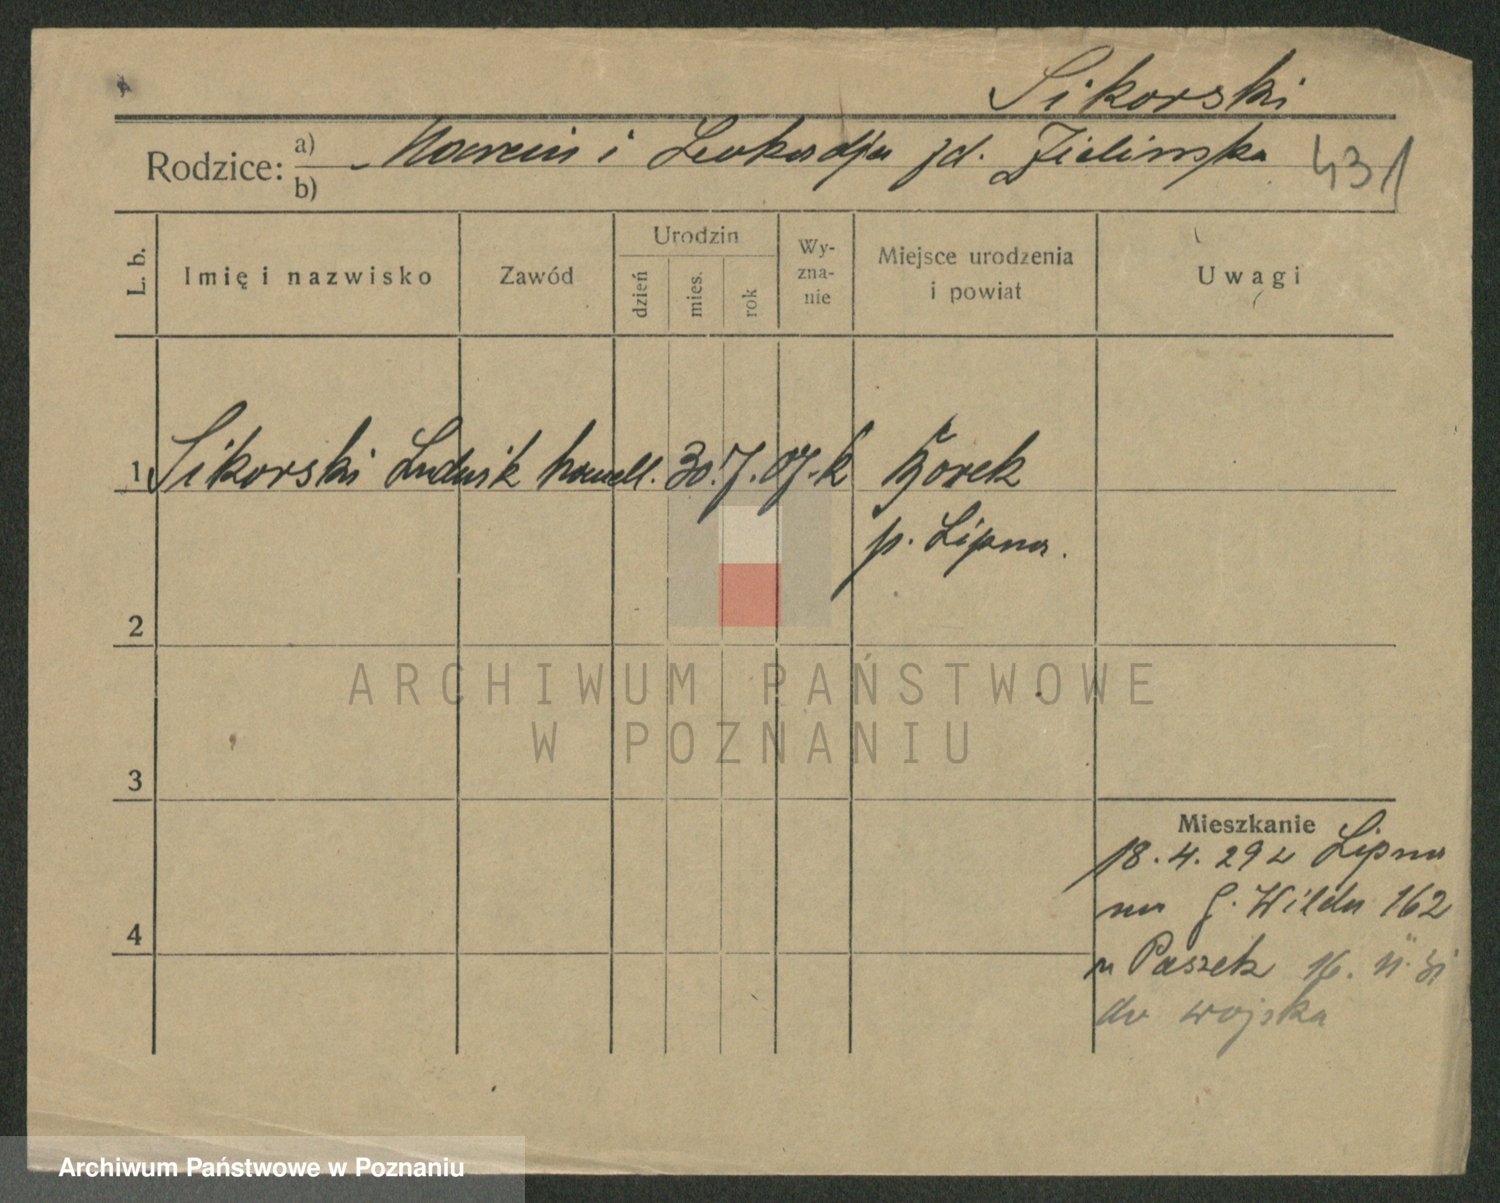 Sikorski
Rodzice: a) Marcin i Leokadja zd. Zielińska 431
b)
L. b. Imię i nazwisko Zawód Urodzin dzień mies. rok Wyznanie Miejsce urodzenia i powiat Uwagi
1 Sikorski Ludwik handl. 30. 7. 07. k Żorek
p. Lipna.
2
ARCHIWUM PAŃSTWOWE
W POZNANIU
3
Mieszkanie
18. 4. 29 z Lipna
na G. Wilda 162
4
u Paszek 16. 11. 31
do wojska
Archiwum Państwowe w Poznaniu